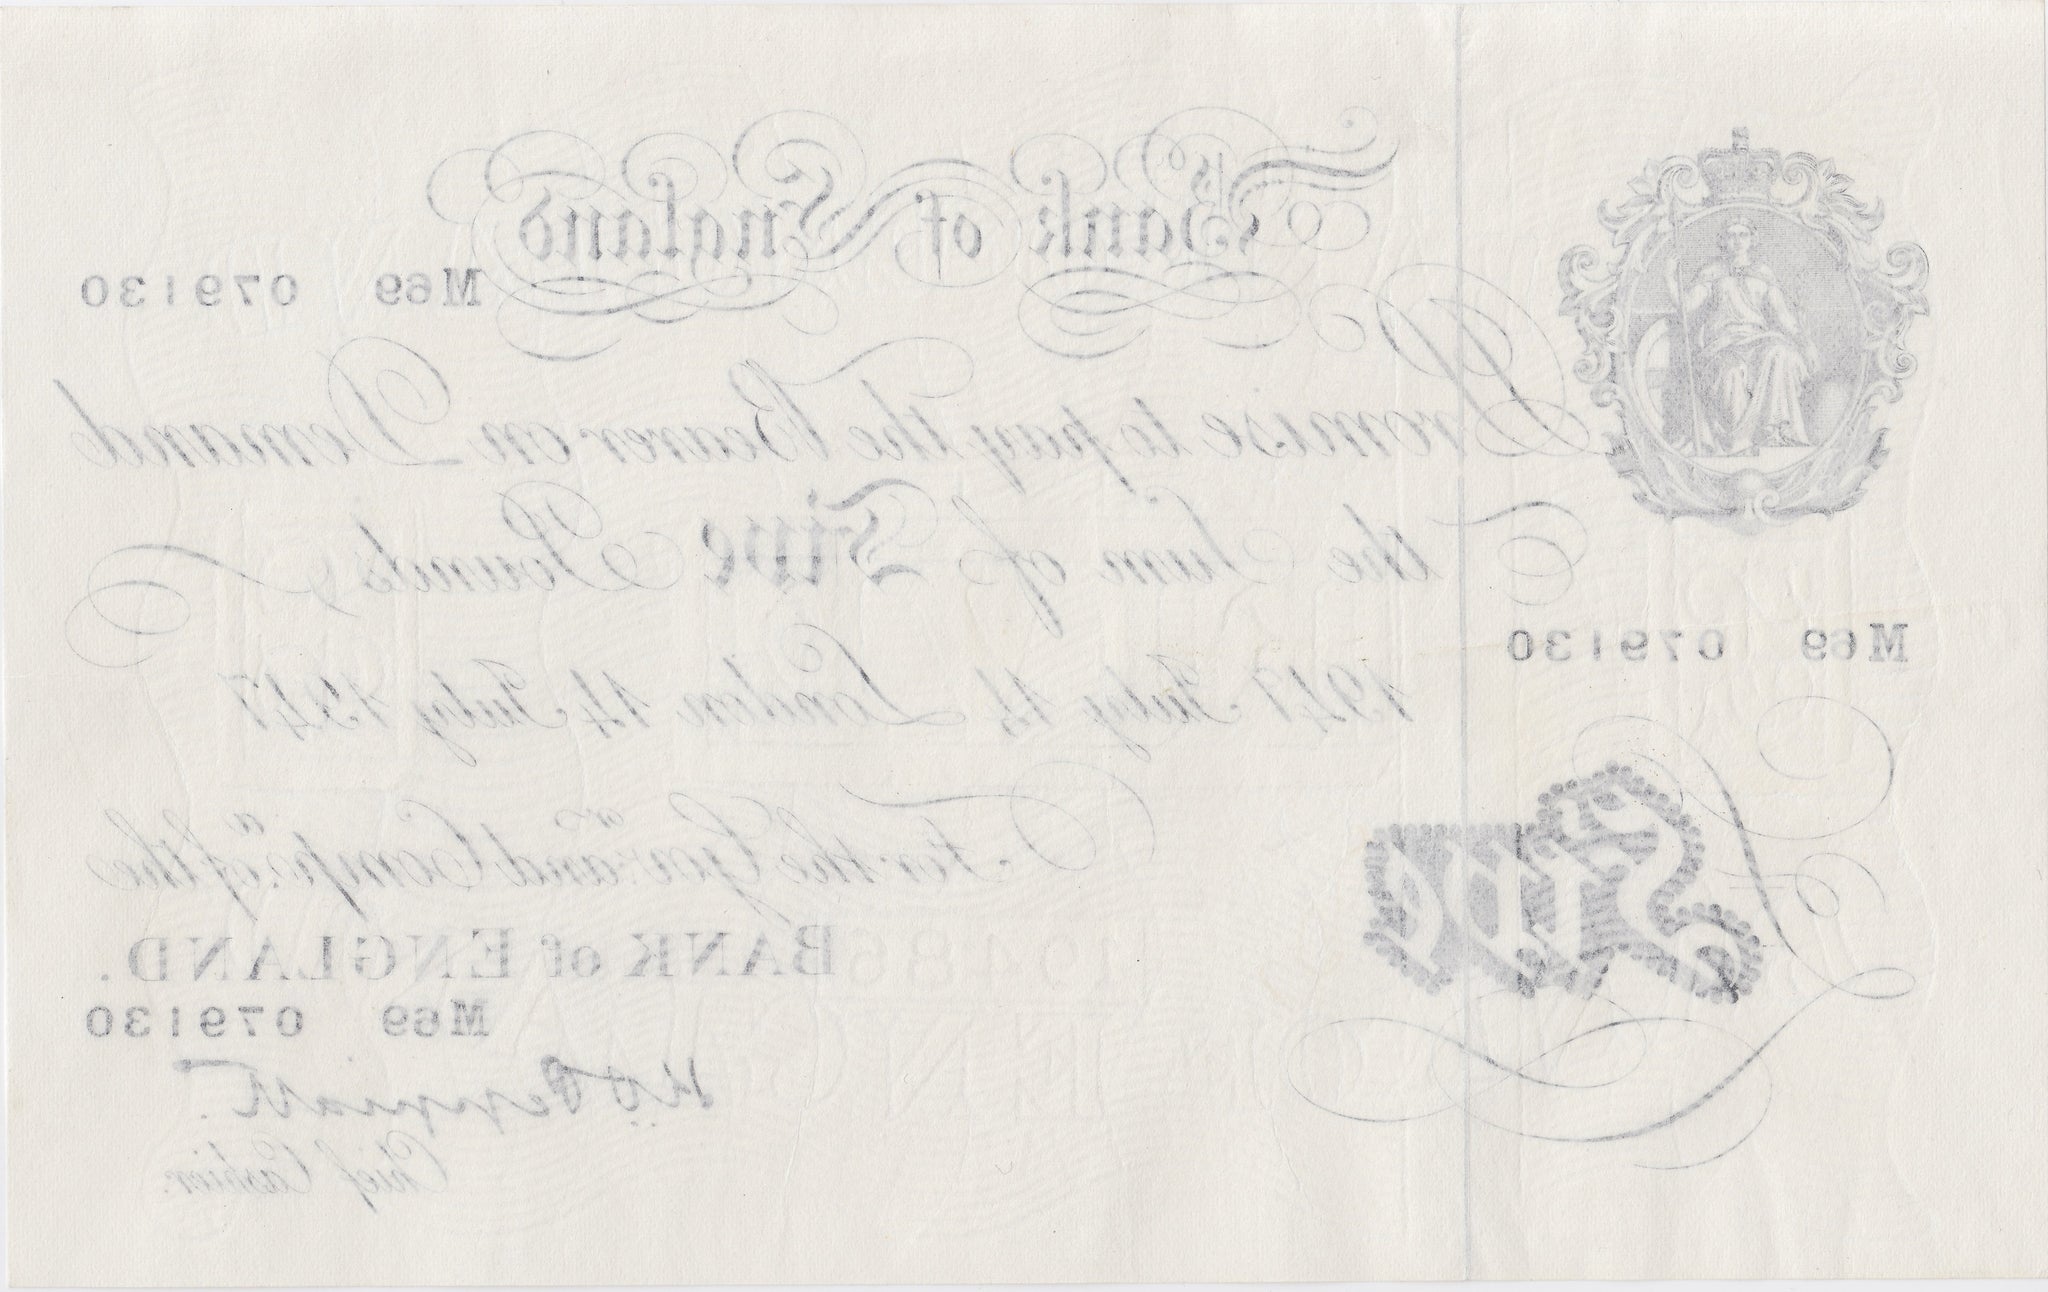 Bank of England
M69 079130
Promise to pay the Bearer on Demand
the Sum of Five Pounds
M69 079130
1947 July 14 London 14 July 1947
For the Govr. and Compa. of the
Five
BANK of ENGLAND.
M69 079130
Chief Cashier.